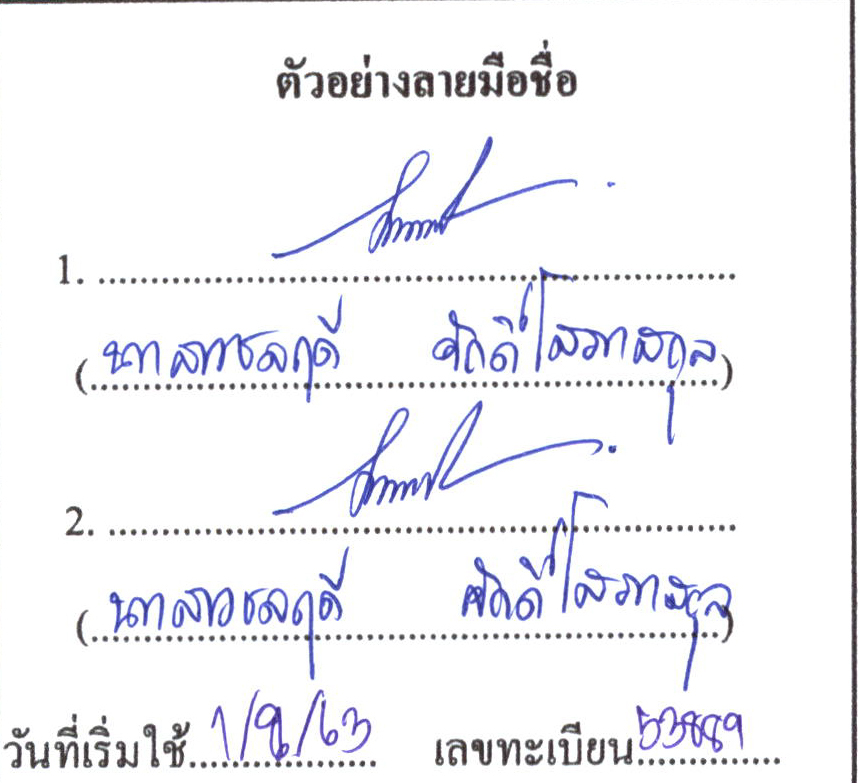 ตัวอย่างลายมือชื่อ
1.
(นางสาวชลฤดี ศักดิ์โสภาสกุล)
2.
(นางสาวชลฤดี ศักดิ์โสภาสกุล)
วันที่เริ่มใช้ เลขทะเบียน 53889